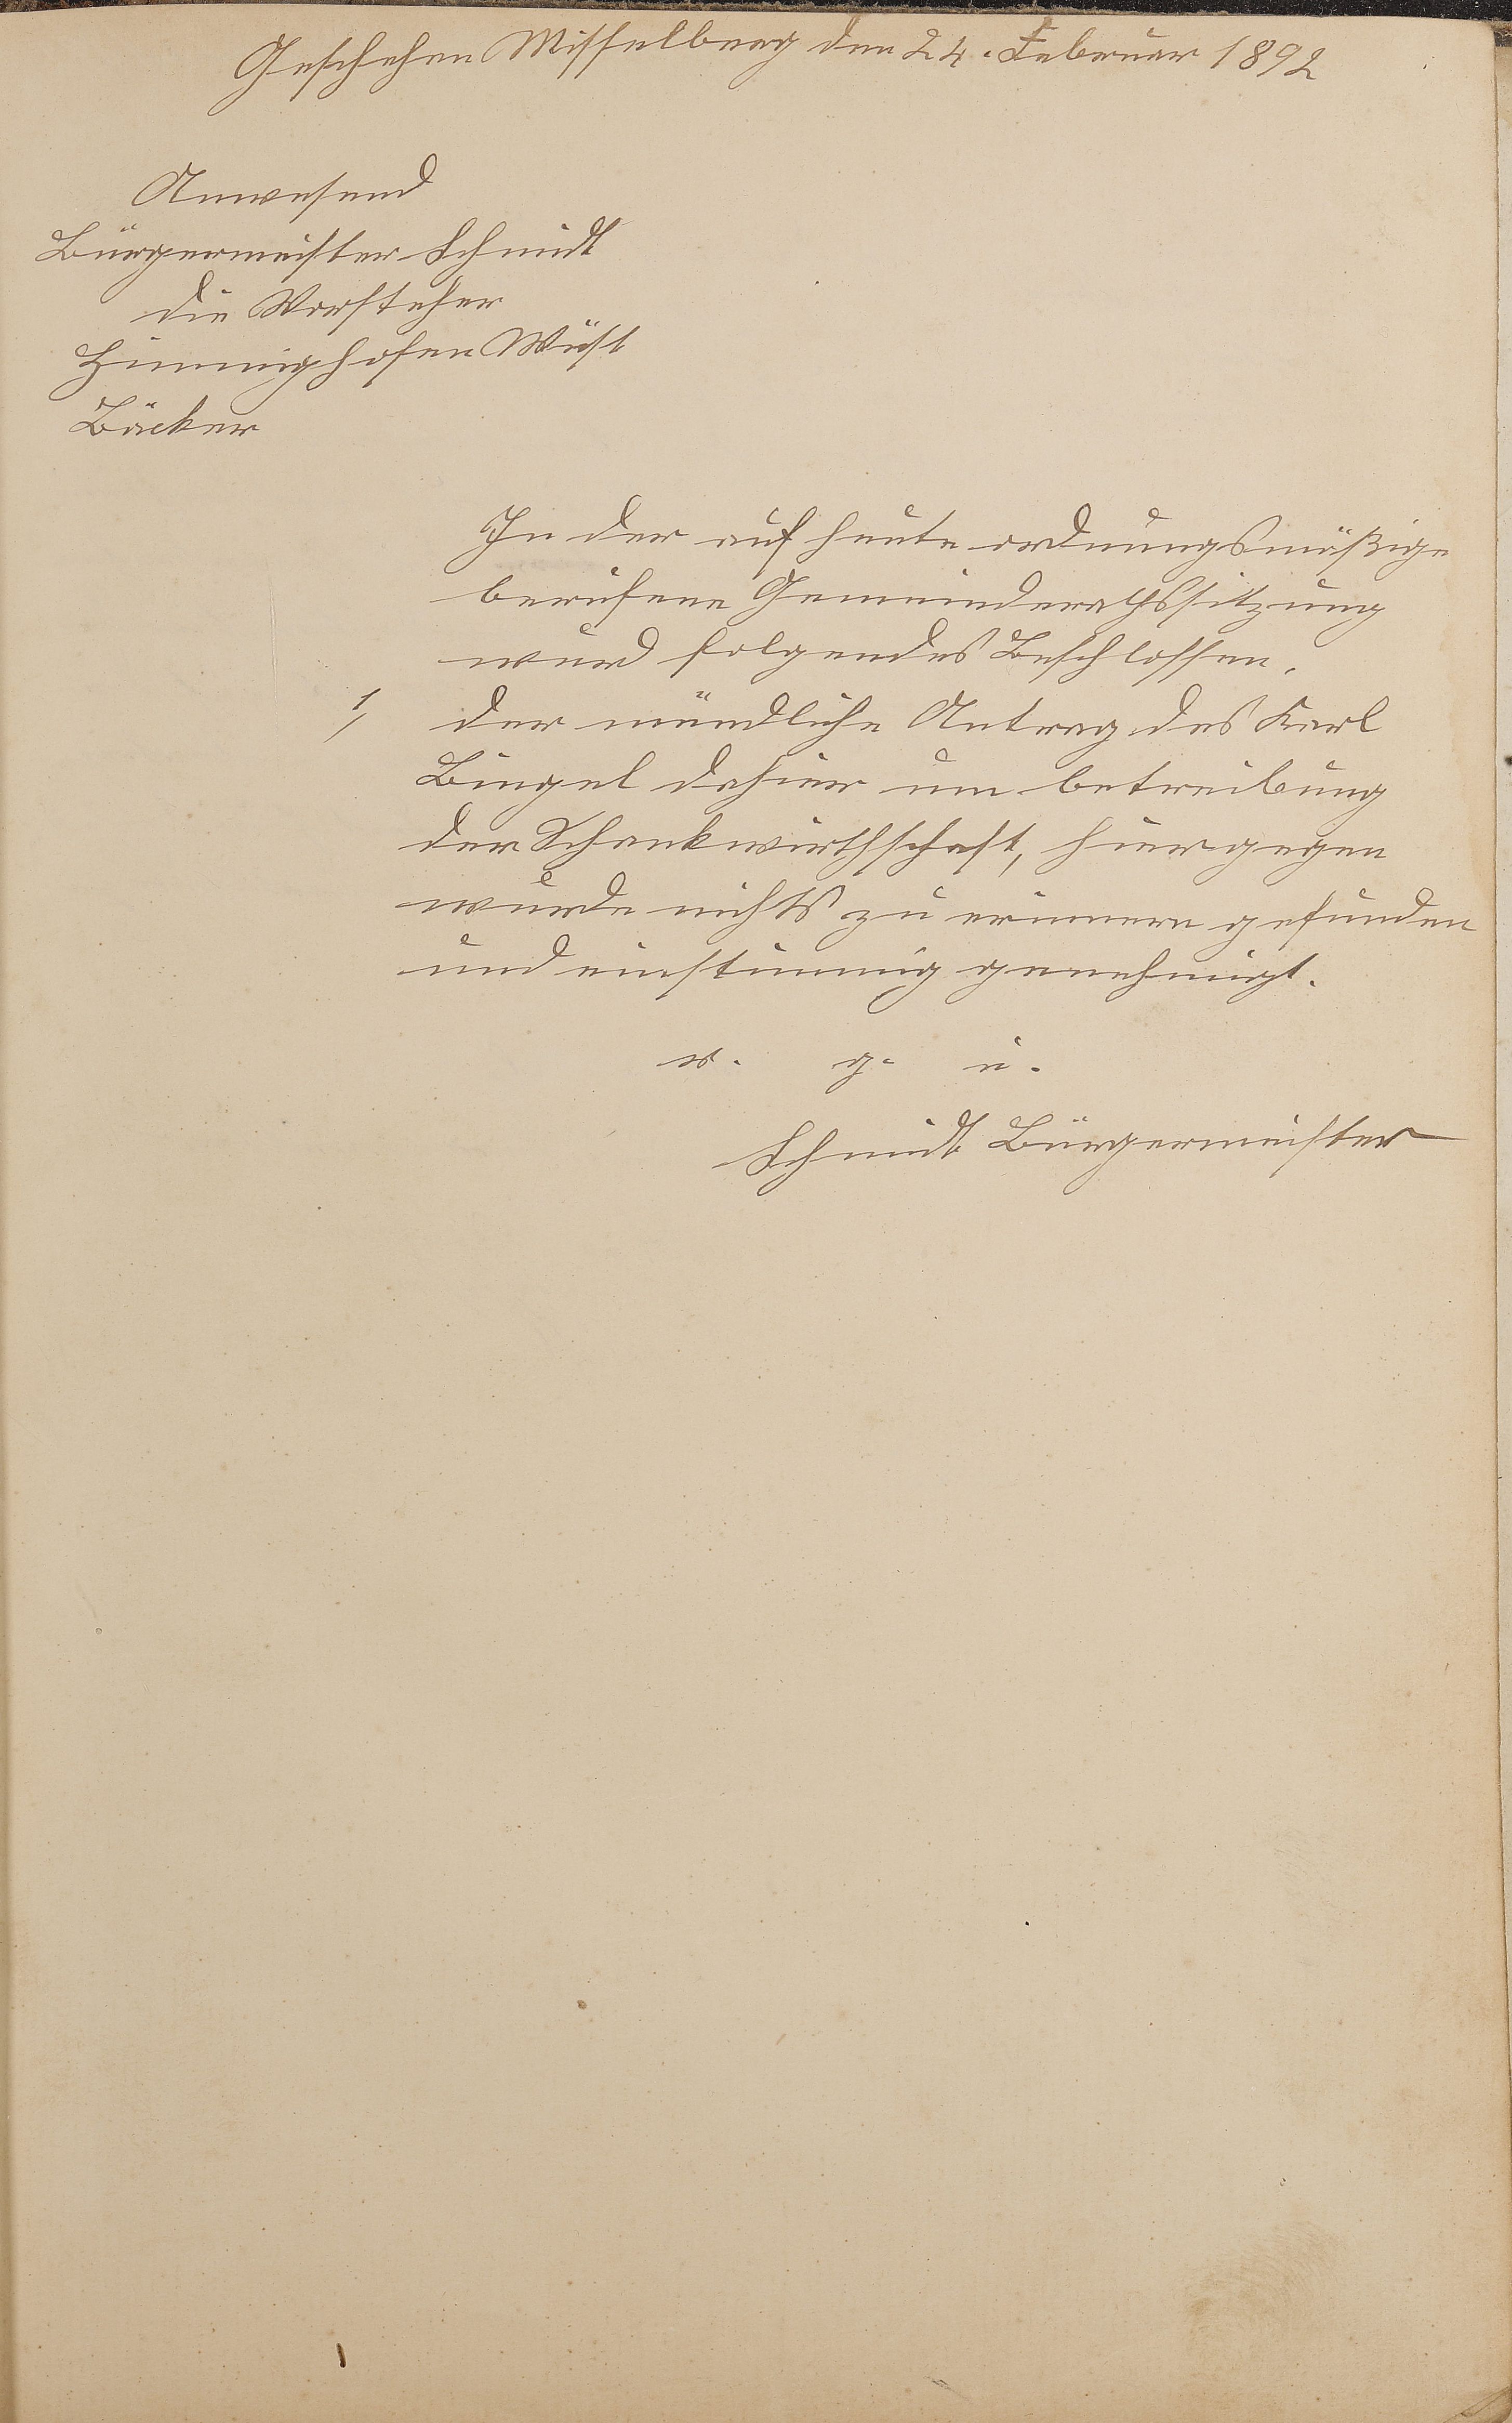 Geschehen Misselberg den 24. Februar 1892
Anwesend
Bürgermeister Schmidt
die Vorsteher
Himmighofen Wüst
Bäcker
In der auf heute ordnungsmäßige
berufene Gemeinderathssitzung
wurd folgendes Beschlossen.
1, der mündliche Antrag des Karl
Bingel dahier um betreibung
der Schankwirthschaft, hiergegen
wurde nichts zu erinnern gefunden
und einstimmig genehmigt.
v. g. u.
Schmidt Bürgermeister